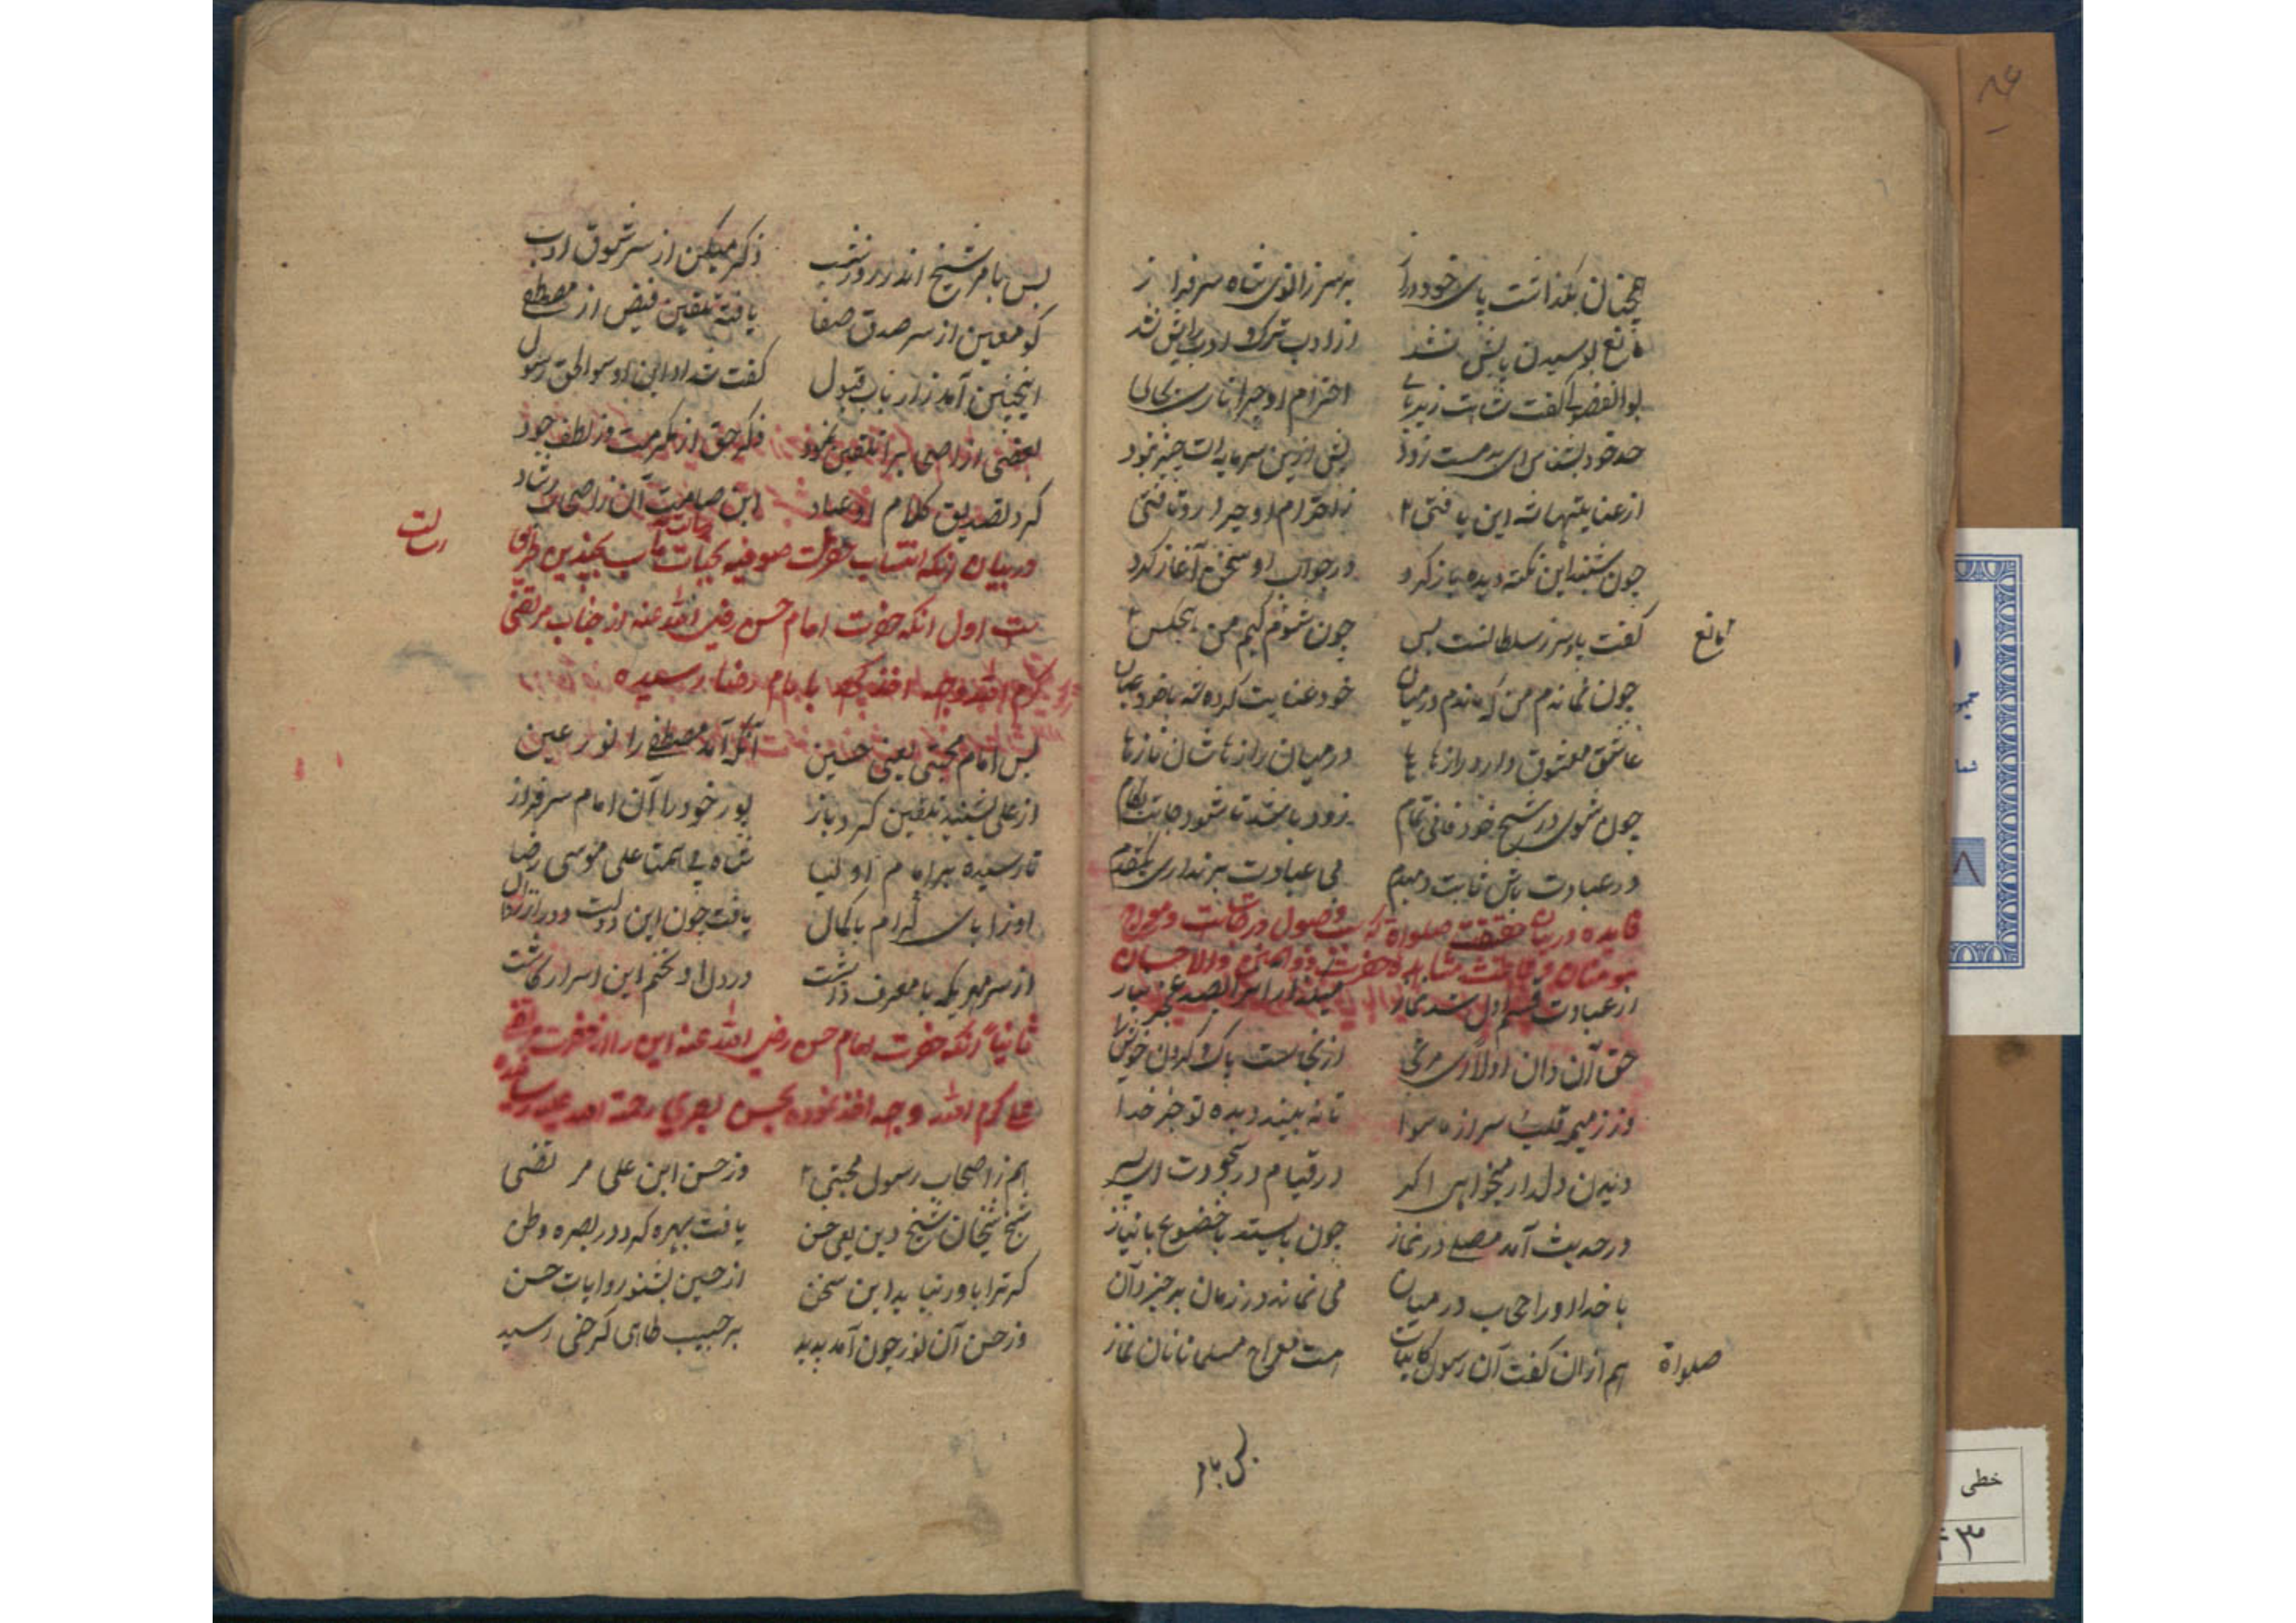 همچنان بگذاشت پای خود دراز بر سر زانوی شاه سرفراز
مانع بوسیدن پایش نشد از ادب ترک ادب رایش نشد
بوالفضولی گفت شاهت زیر پای احترام او چرا ناری بجای
حد خود بشناس ای بدمست زود بیش ازین سرمایه‌ات چیزی نبود
از عنایتهای شه این یافتی زاحترام او چرا رو تافتی
چون شنید این نکته دیده باز کرد در جواب او سخن آغاز کرد
گفت پا و سر ز سلطانست بس چون شوم کیم من هیچکس
مانع
چون نماندم من که ماندم در میان خود عنایت کرده شه با خود عیان
عاشق معشوق دارد رازها در میان رازهاشان نازها
چون شوی در شیخ خود فانی تمام زود باشد تا شود جانت بکام
در عبادت باش ثابت دمبدم بی عبادت بر نداری یکقدم
فایده در بیان حقیقت صلواة که سبب وصول درجات و معراج
مومنان و مشاهده حضرت ذوالمنن والاحسان
از عبادت قسم اول شد نماز
حق آن دان اولا از نجاست پاک کردن خویش را
وز ذمیمه قلب سر از ماسوا تا نه بیند دیده تو جز خدا
دیدن دلدار میخواهی اگر در قیام در سجودت ای پسر
در حدیث آمد مصلی در نماز چون بایستد با خضوع با نیاز
با خدا او را حجاب در میان می نماند در زمان برخیز دان
هم ازان گفت آن رسول کاینات هست معراج مسلمانان نماز
صلواة
پس بامر
پس بامر شیخ اندر روز شب ذکر میکن از سر شوق ادب
کو معین از سر صدق صفا یافته تلقین فیض از مصطفی
اینچنین آمد ز ارباب قبول گفت شداد ابن اوس والحق رسول
بعضی از اصحاب را تلقین نمود ذکر حق از مکرمت وز لطف جود
کرد تصدیق کلام او عباد ابن صامت آن ز اصحاب رشاد
در بیان آنکه انتساب حضرت صوفیه بجناب رسالت مآب بچندین طریق
رسالت
است اول آنکه حضرت امام حسن رضی الله عنه از جناب مرتضی
کرم الله وجهه اخذ کرد تا بامام رضا رسیده
پس امام مجتبی یعنی حسین آنکه آمد مصطفی را نور عین
از علی بشنید تلقین کرد باز پور خود را آن امام سرفراز
تا رسیده بر امام اولیا شاه علی موسی رضا
او ز آبای کرام باکمال یافت چون این دولت
از سر مهر یکه با معروف داشت در دل او تخم این اسرار کاشت
ثانیا آنکه حضرت امام حسن رضی الله عنه این را از حضرت مرتضی
علی کرم الله وجهه اخذ نموده بحسن بصری رحمة الله علیه رسانیده
هم ز اصحاب رسول مجتبی وز حسن ابن علی مرتضی
شیخ شیخان شیخ دین یعنی حسن یافت بهره کرد در بصره وطن
گر ترا باور نیاید این سخن از حسین بشنو روایات حسن
وز حسن آن نور چون آمد پدید بر حبیب طائی کرخی رسید
خطی